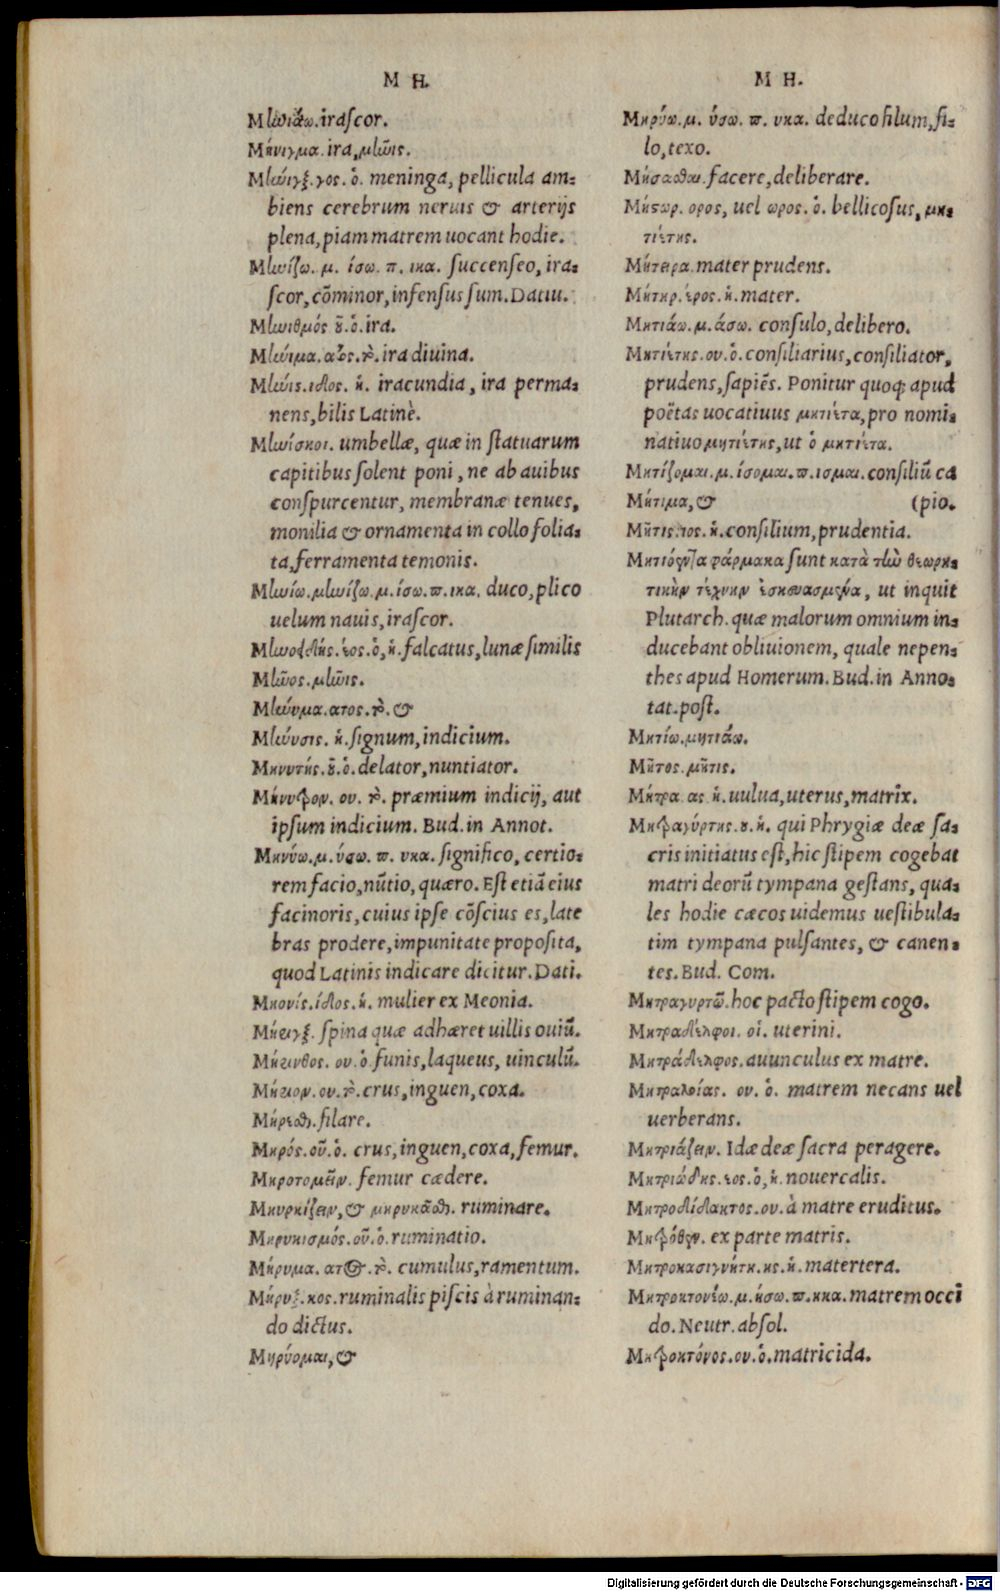 M H.
Μηνιάω. iraſcor.
Μήνιγμα. ira, μῆνις.
Μήνιγξ. γος. ὁ. meninga, pellicula am=
biens cerebrum neruis & arterijs
plena, piam matrem uocant hodie.
Μηνίζω. μ. ίσω. π. ικα. ſuccenſeo, ira=
ſcor, cōminor, infenſus ſum. Datiu.
Μηνιθμός ȣ͂. ὁ. ira.
Μήνιμα. ατος. τὸ. ira diuina.
Μήνις. ιδος. ἡ. iracundia, ira perma=
nens, bilis Latinè.
Μηνίσκοι. umbellæ, quæ in ſtatuarum
capitibus ſolent poni, ne ab auibus
conſpurcentur, membranæ tenues,
monilia & ornamenta in collo folia=
ta, ferramenta temonis.
Μηνίω. μηνίζω. μ. ίσω. π. ικα. duco, plico
uelum nauis, iraſcor.
Μηνοειδής. έος. ὁ, ἡ. falcatus, lunæ ſimilis
Μῆνος. μῆνις.
Μήνυμα. ατος. τὸ. &
Μήνυσις. ἡ. ſignum, indicium.
Μηνυτής. ȣ͂. ὁ. delator, nuntiator.
Μήνυτρον. ου. τὸ. præmium indicij, aut
ipſum indicium. Bud. in Annot.
Μηνύω. μ. ύσω. π. υκα. ſignifico, certio=
rem facio, nūtio, quæro. Eſt etiā eius
facinoris, cuius ipſe cōſcius es, late
bras prodere, impunitate propoſita,
quod Latinis indicare dicitur. Dati.
Μηονίς. ίδος. ἡ. mulier ex Meonia.
Μήριγξ. ſpina quæ adhæret uillis ouiū.
Μήρινθος. ου. ὁ. funis, laqueus, uinculū.
Μήριον. ου. τὸ. crus, inguen, coxa.
Μήρεσθ. filare.
Μηρός. οῦ. ὁ. crus, inguen, coxa, femur.
Μηροτομεῖν. femur cædere.
Μηυρκίζειν, & μηρυκᾶσθ. ruminare.
Μηρυκισμός. οῦ. ὁ. ruminatio.
Μήρυμα. ατος. τὸ. cumulus, ramentum.
Μήρυξ. κος. ruminalis piſcis à ruminan=
do dictus.
Μηρύομαι, &
M H.
Μηρύω. μ. ύσω. π. υκα. deduco filum, fi=
lo, texo.
Μήσασθαι. facere, deliberare.
Μήστωρ. ορος, uel ωρος. ὁ. bellicoſus, μη=
τιέτης.
Μήτειρα. mater prudens.
Μήτηρ. έρος. ἡ. mater.
Μητιάω. μ. άσω. conſulo, delibero.
Μητιέτης. ου. ὁ. conſiliarius, conſiliator,
prudens, ſapiēs. Ponitur quoq; apud
poëtas uocatiuus μητιέτα, pro nomi=
natiuo μητιέτης, ut ὁ μητιέτα.
Μητίζομαι. μ. ίσομαι. π. ισμαι. conſiliū ca
Μήτιμα, & (pio.
Μῆτις. ιος. ἡ. conſilium, prudentia.
Μητιόεντα φάρμακα ſunt κατὰ τὴν θεωρη=
τικὴν τέχνην ἐσκευασμένα, ut inquit
Plutarch. quæ malorum omnium in=
ducebant obliuionem, quale nepen=
thes apud Homerum. Bud. in Anno=
tat. poſt.
Μητίω. μητιάω.
Μῆτος. μῆτις.
Μήτρα ας ἡ. uulua, uterus, matrix.
Μητραγύρτης. ȣ. ἡ. qui Phrygiæ deæ ſa=
cris initiatus eſt, hic ſtipem cogebat
matri deorū tympana geſtans, qua=
les hodie cæcos uidemus ueſtibula=
tim tympana pulſantes, & canen=
tes. Bud. Com.
Μητραγυρτῶ. hoc pacto ſtipem cogo.
Μητραδέλφοι. οἱ. uterini.
Μητράδελφος. auunculus ex matre.
Μητραλοίας. ου. ὁ. matrem necans uel
uerberans.
Μητριάζειν. Idæ deæ ſacra peragere.
Μητριώδης. εος. ὁ, ἡ. nouercalis.
Μητροδίδακτος. ου. à matre eruditus.
Μητρόθεν. ex parte matris.
Μητροκασιγνήτη. ης. ἡ. matertera.
Μητροκτονέω. μ. ήσω. π. ηκα. matrem occi
do. Neutr. abſol.
Μητροκτόνος. ου. ὁ. matricida.
Digitalisierung gefördert durch die Deutsche Forschungsgemeinschaft - DFG